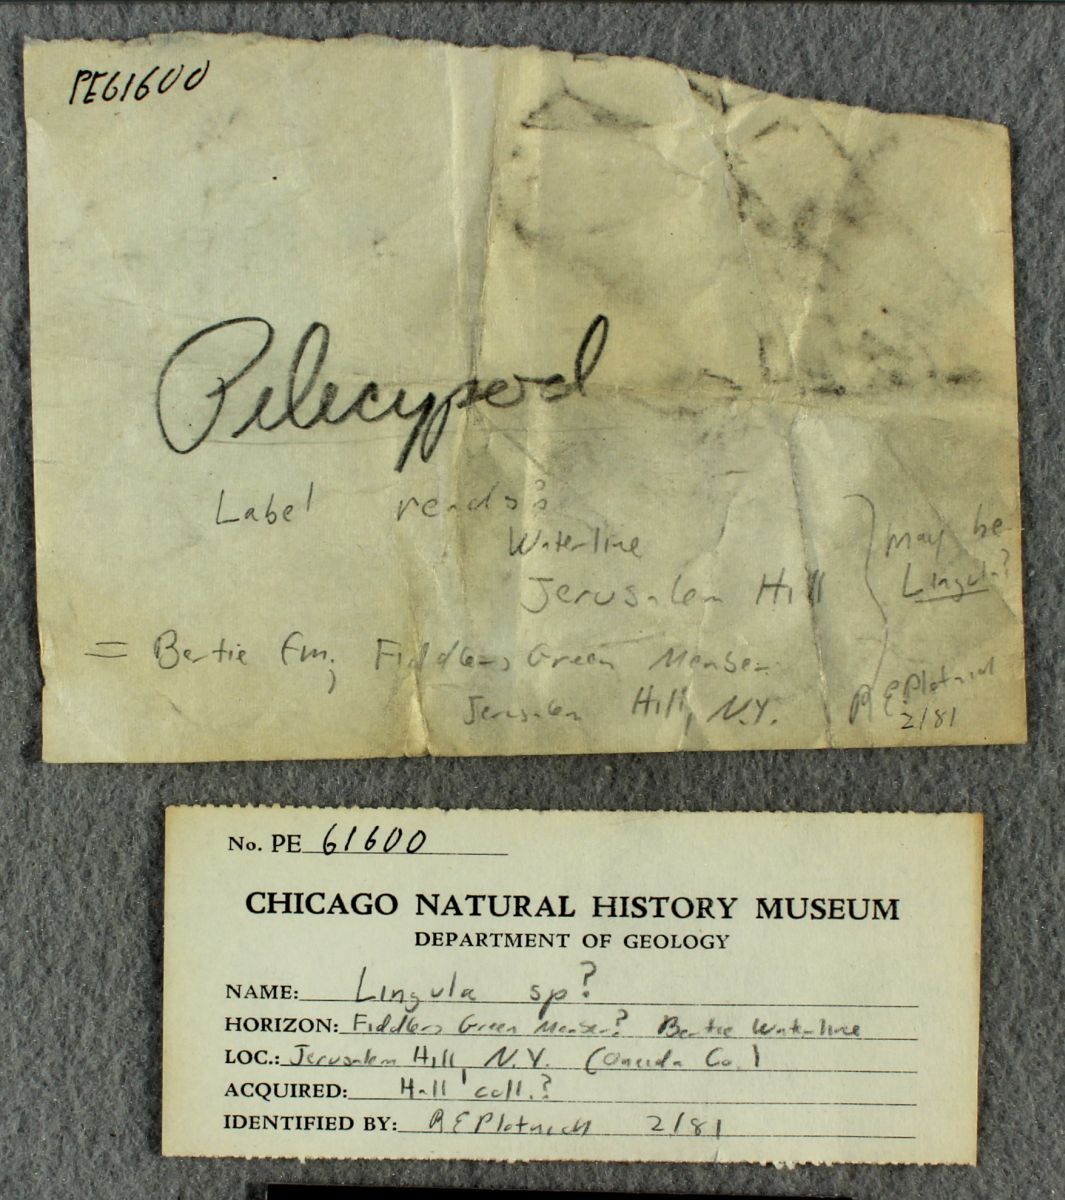 PE61600
Pelecypod
Label reads:
Waterlime
Jerusalem Hill
May be
Lingula?
= Bertie Fm; Fiddlers Green Member
Jerusalem Hill, N.Y.
R E Plotnick
2/81
No. PE 61600
CHICAGO NATURAL HISTORY MUSEUM
DEPARTMENT OF GEOLOGY
NAME: Lingula sp?
HORIZON: Fiddlers Green Member? Bertie Waterlime
LOC.: Jerusalem Hill, N.Y. (Oneida Co.)
ACQUIRED: Hall coll.?
IDENTIFIED BY: R E Plotnick 2/81